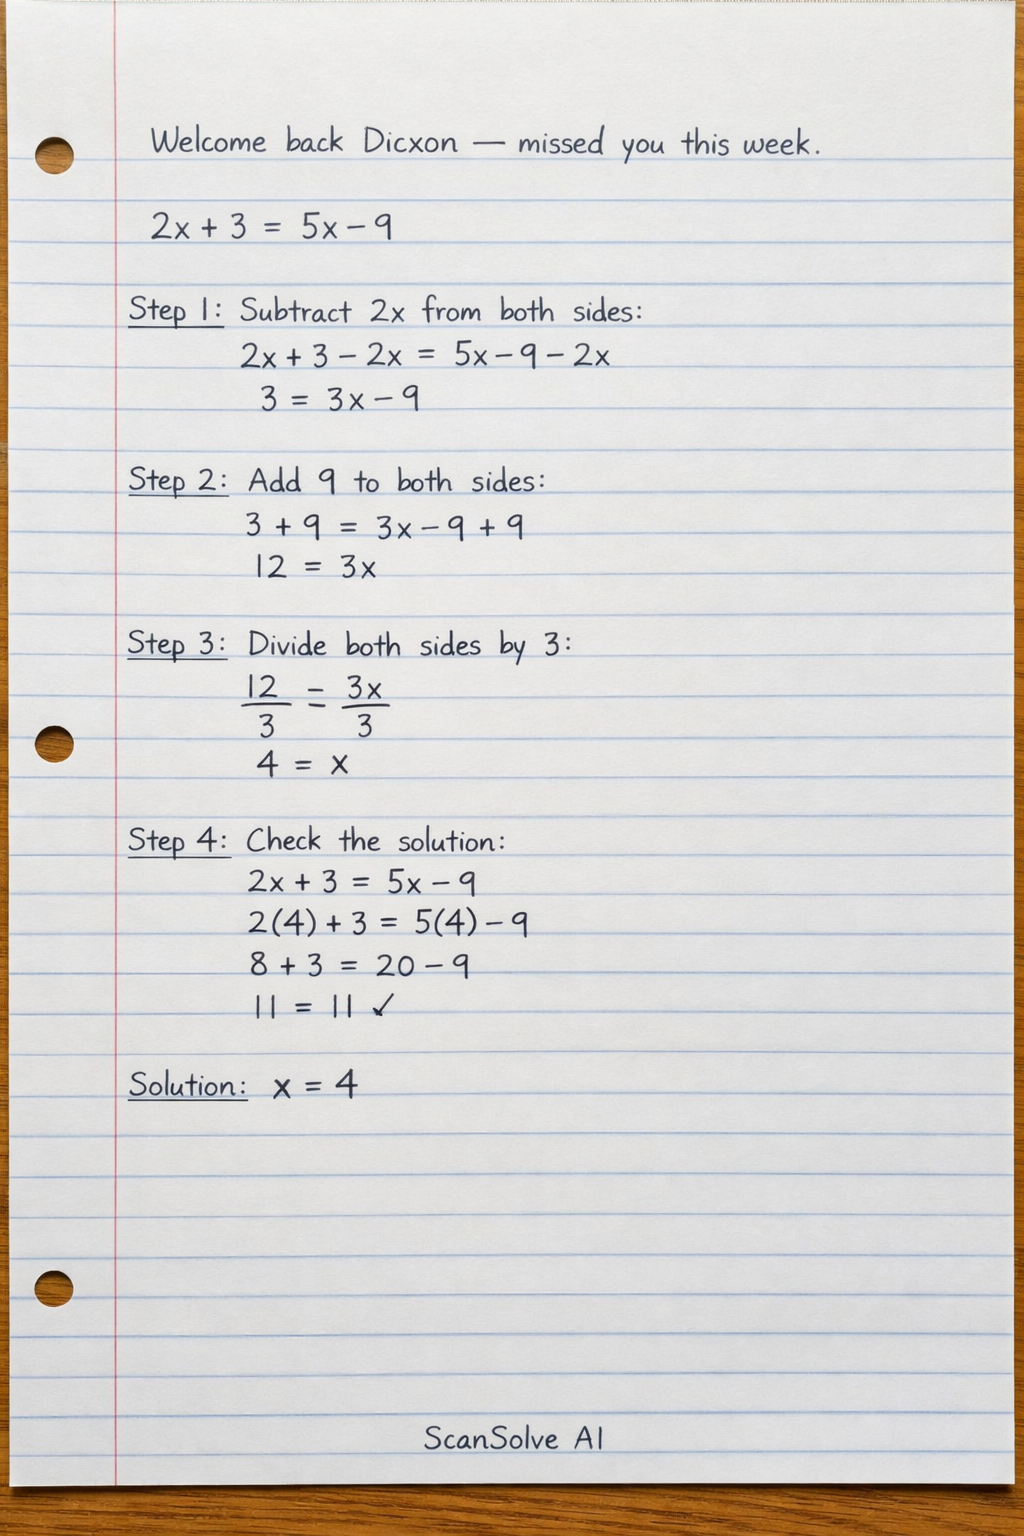 Welcome back Dicxon — missed you this week.
2x + 3 = 5x - 9
Step 1: Subtract 2x from both sides:
2x + 3 - 2x = 5x - 9 - 2x
3 = 3x - 9
Step 2: Add 9 to both sides:
3 + 9 = 3x - 9 + 9
12 = 3x
Step 3: Divide both sides by 3:
12/3 = 3x/3
4 = x
Step 4: Check the solution:
2x + 3 = 5x - 9
2(4) + 3 = 5(4) - 9
8 + 3 = 20 - 9
11 = 11 ✓
Solution: x = 4
ScanSolve AI